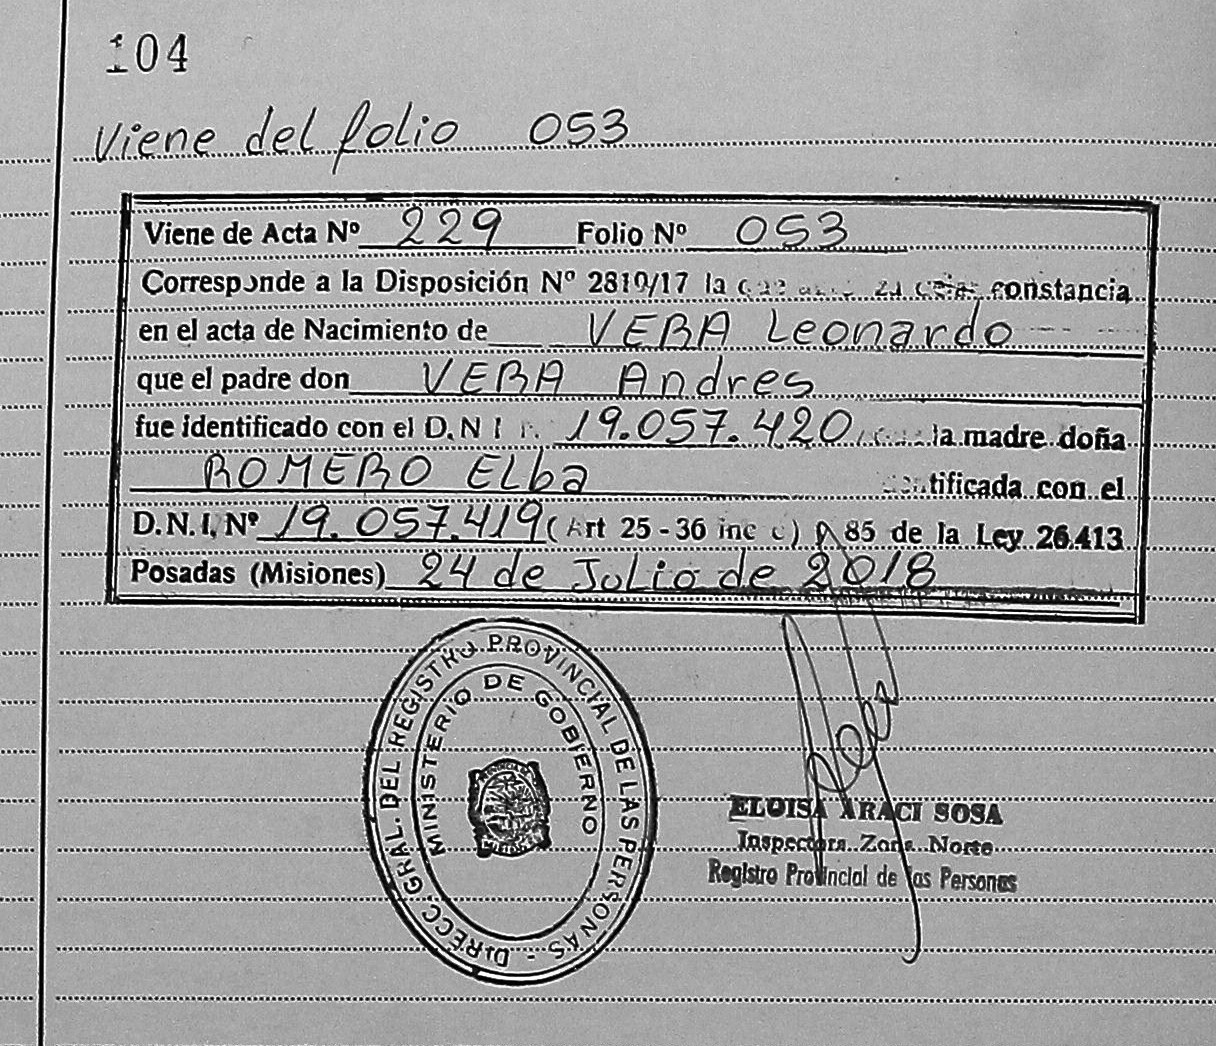 104
Viene del folio 053
Viene de Acta Nº 229 Folio Nº 053
Corresponde a la Disposición Nº 2810/17 la constancia
en el acta de Nacimiento de VERA Leonardo
que el padre don VERA Andres
fue identificado con el D.N.I 19.057.420 la madre doña
ROMERO ELba
con el
D.N.I. Nº 19.057.419 (Art 25 - 36 inc c) y 85 de la Ley 26.413
Posadas (Misiones) 24 de Julio de 2018
DIRECC. GRAL. DEL REGISTRO PROVINCIAL DE LAS PERSONAS -
MINISTERIO DE GOBIERNO
ELOISA ARACI SOSA
Inspectora Zona Norte
Registro Provincial de las Personas